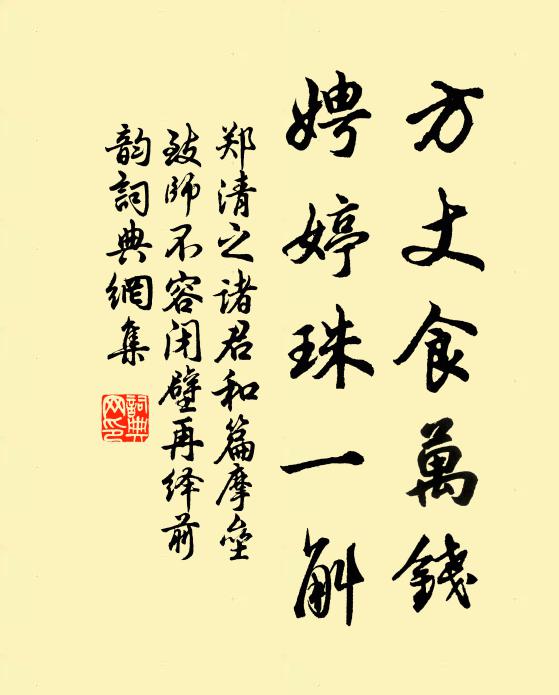 方丈食萬錢
娉婷珠一斛
郑清之诸君和篇摩垒
致师不容闭壁再绎前
韵詞典網集
詞典
网印